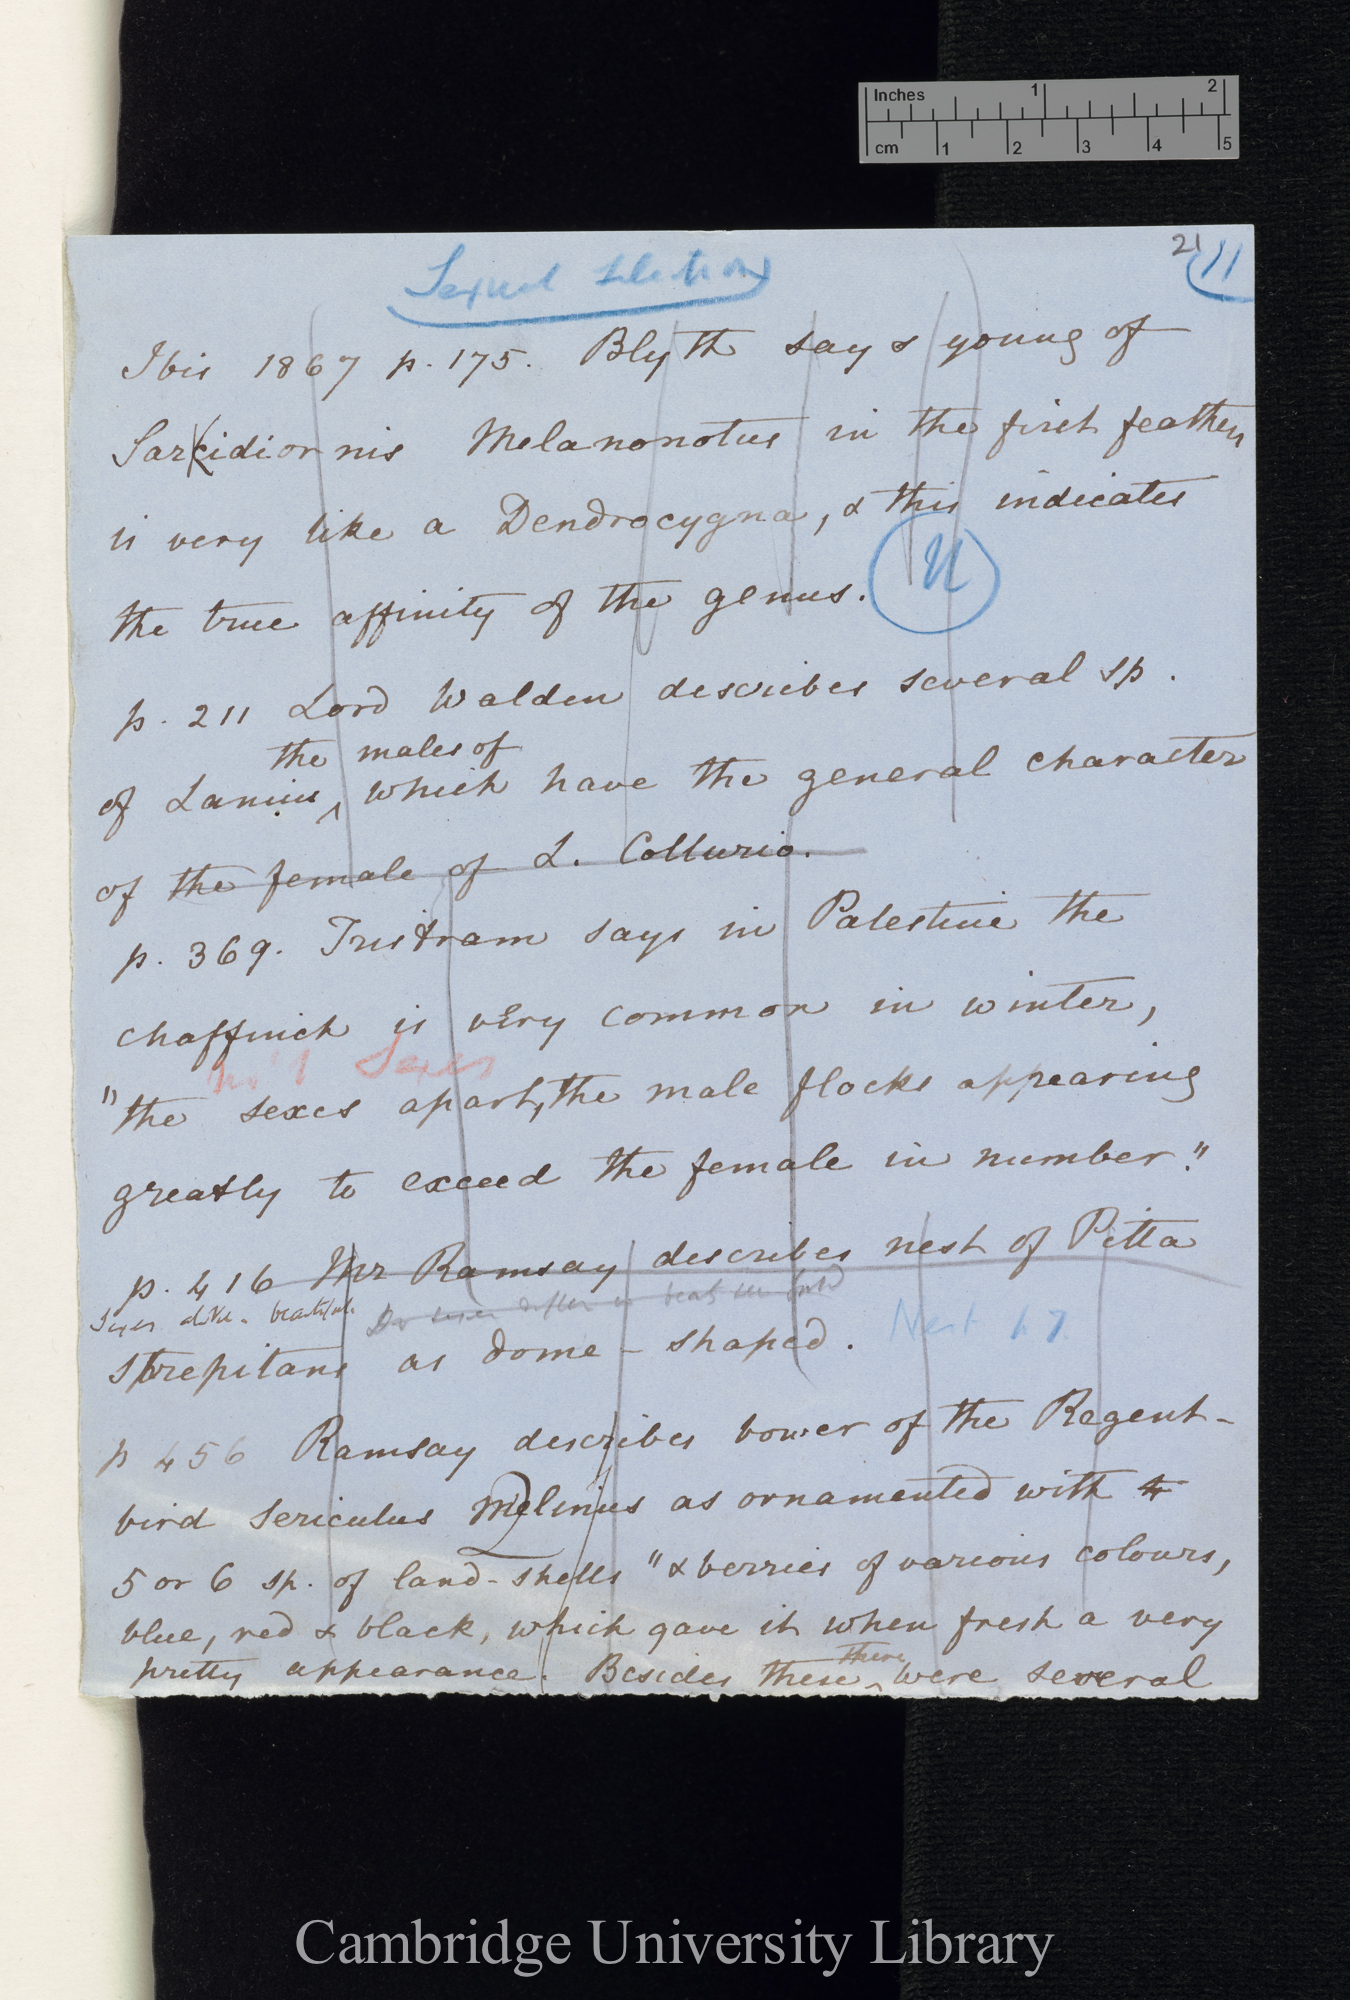 Inches 1 2
cm 1 2 3 4 5
21
11
Sexual Selection
Ibis 1867 p. 175. Blyth says young of
Sarkidiornis Melanonotus in the first feathers
is very like a Dendrocygna, & this indicates
the true affinity of the genus.
U
p. 211 Lord Walden describes several sp.
the males of
of Lanius ^ which have the general character
of the female of L. Collurio.
p. 369. Tristram says in Palestine the
chaffinch is very common in winter,
Sexes
"the sexes apart, the male flocks appearing
greatly to exceed the female in number."
p. 416 Mr Ramsay describes nest of Pitta
Sexes alike. beautiful
Do sexes differ in
Nest 67
strepitans as dome-shaped.
p 456 Ramsay describes bower of the Regent-
bird Sericulus Melinus as ornamented with 4
5 or 6 sp. of land-shells "& berries of various colours,
blue, red & black, which gave it when fresh a very
there
pretty appearance. Besides these ^ were several
Cambridge University Library